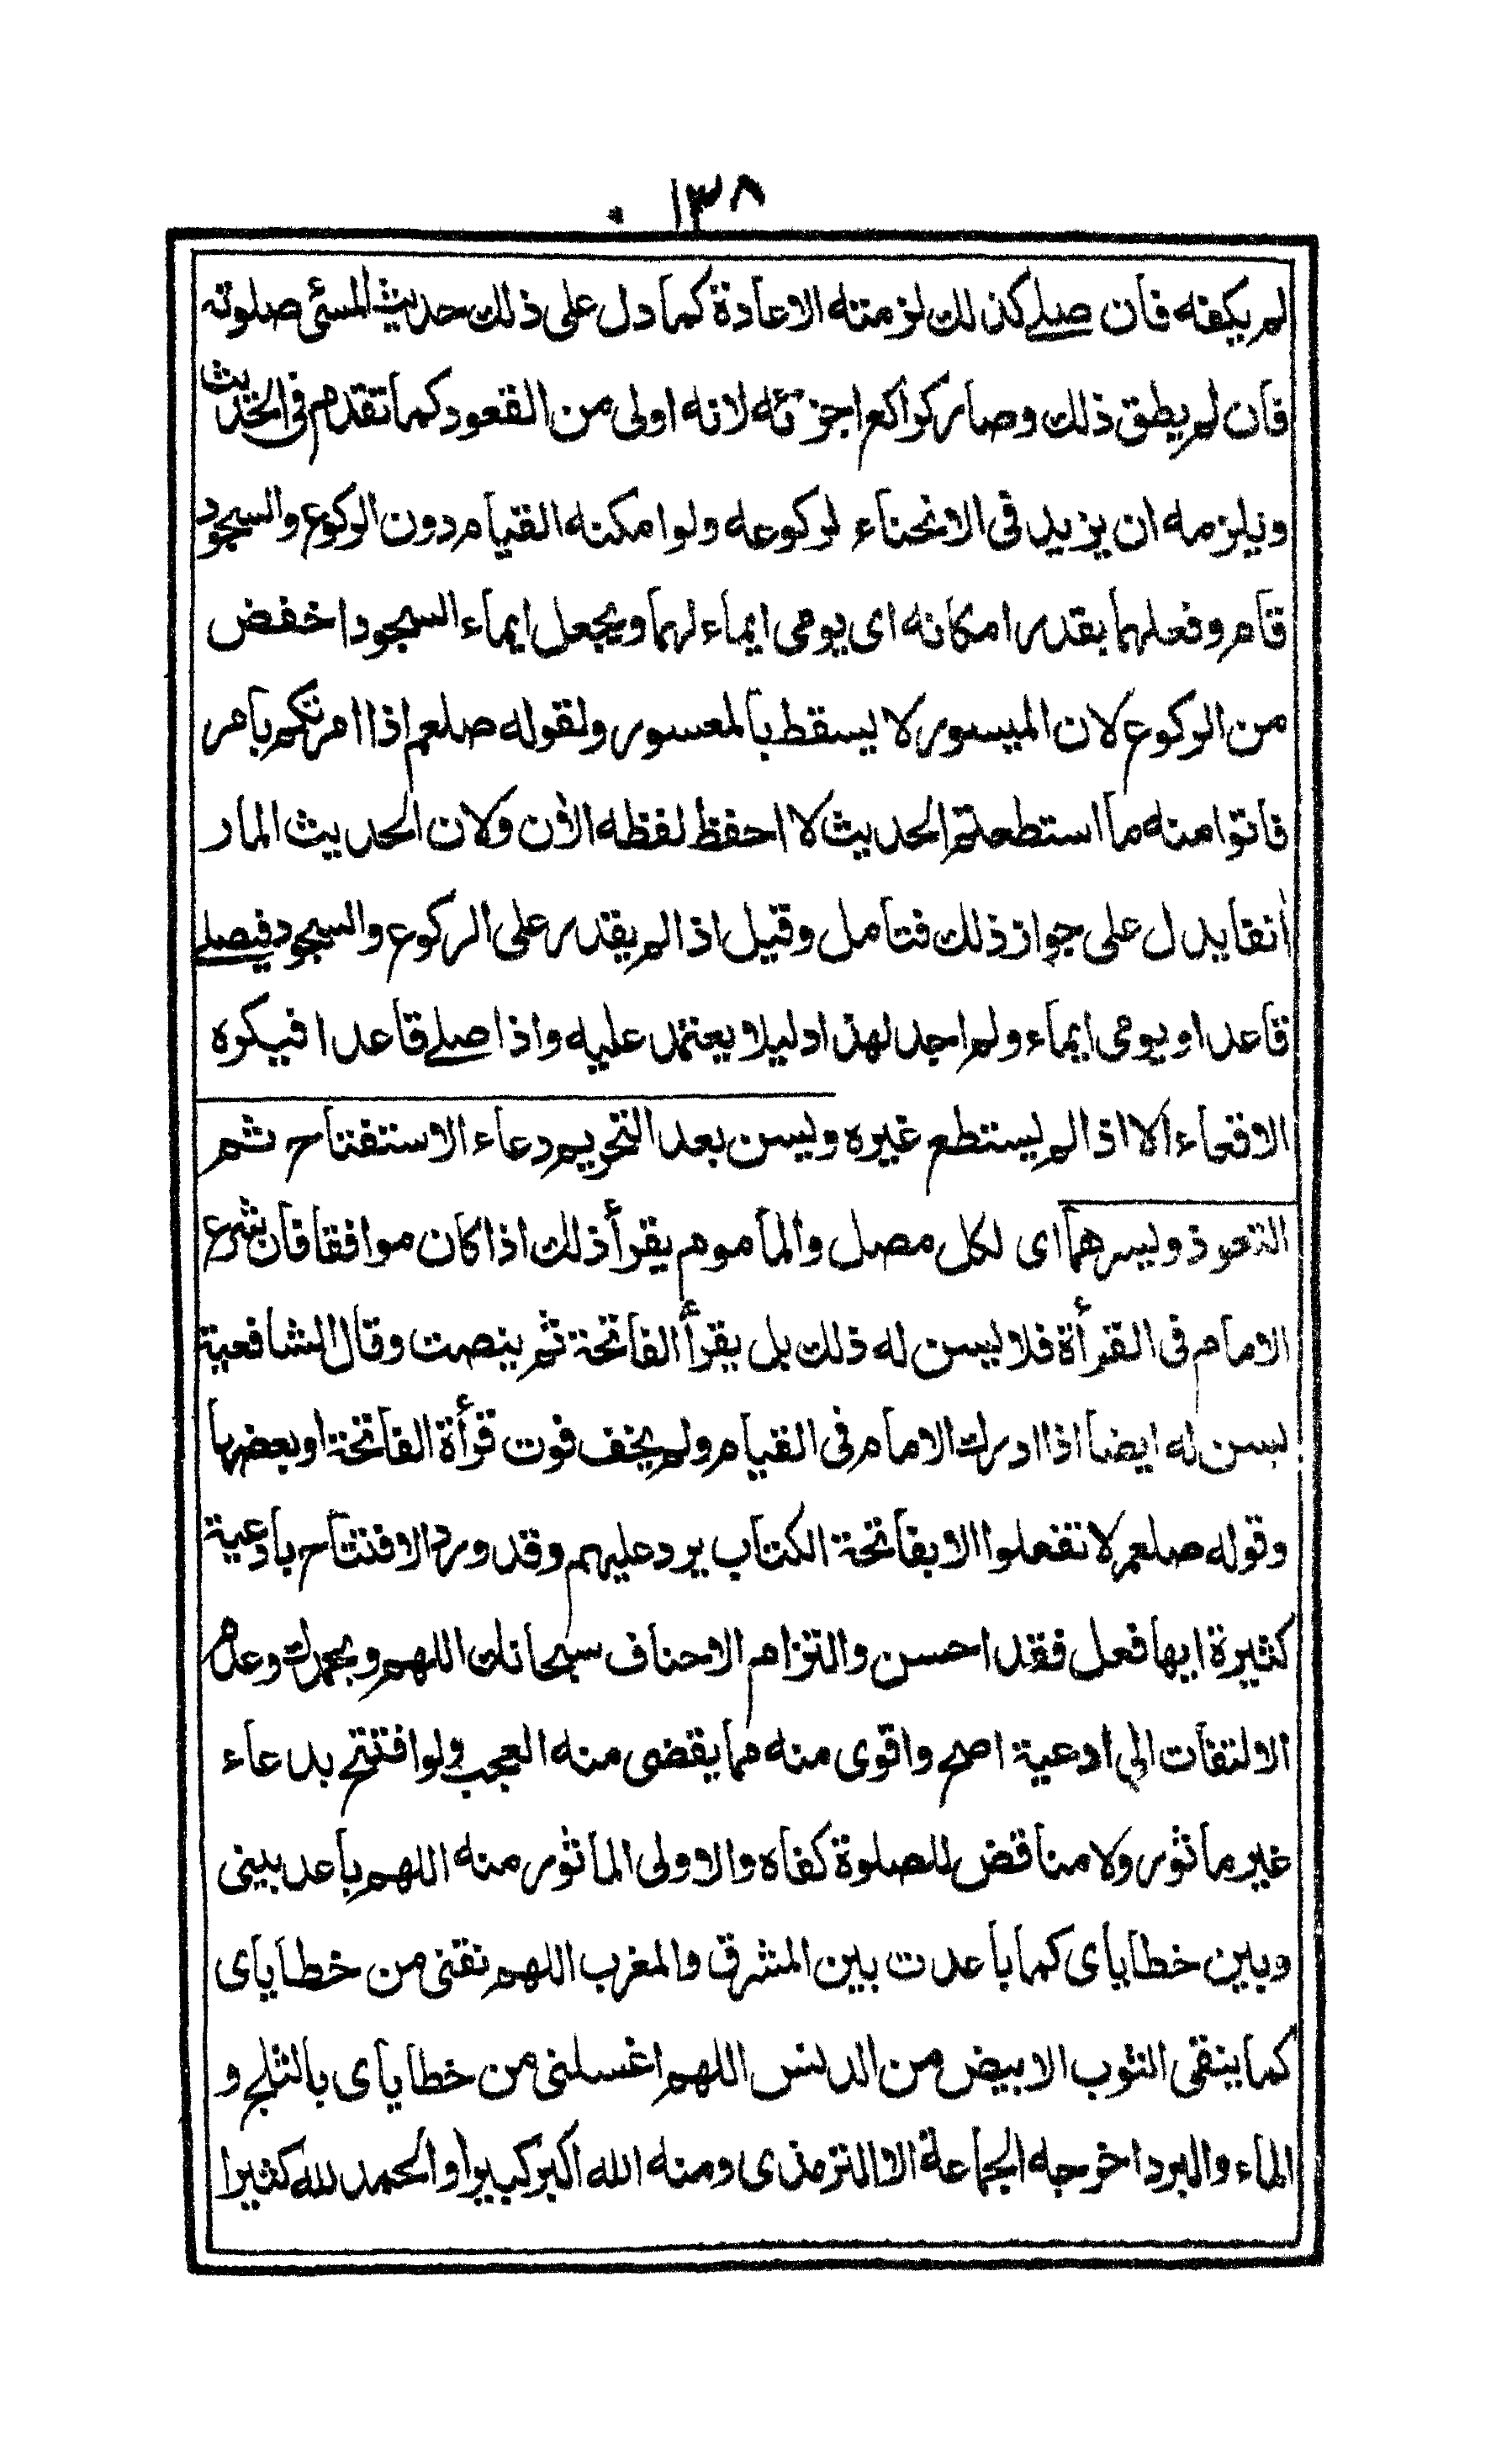 ١٣٨
لم يكفه فان صلے كذلك لزمته الاعادة كما دل على ذلك حديث المسئى صلوته
فان لم يطق ذلك وصار كراكع اجزئه لانه اولى من القعود كما تقدم فى الحديث
ويلزمه ان يزيد فى الانحناء لركوعه ولو امكنه القيام دون الركوع والسجود
قام وفعلهما بقدر امكانه اى يومى ايماء لهما ويجعل ايماء السجود اخفض
من الركوع لان الميسور لا يسقط بالمعسور ولقوله صلعم اذا امرتكم بامر
فاتوا منه ما استطعتم الحديث لا احفظ لفظه الأن ولان الحديث المار
أنفا يدل على جواز ذلك فتامل وقيل اذا لم يقدر على الركوع والسجود فيصلے
قاعدا ويومى ايماء ولم اجد لهذا دليلا يعتمد عليه واذا صلے قاعدا فيكره
الاقعاء الا اذا لم يستطع غيره ويسن بعد التحريم دعاء الاستفتاح ثم
التعوذ ويسرهما اى لكل مصل والمأموم يقرأ ذلك اذا كان موافقا فان شرع
الامام فى القرأة فلا يسن له ذلك بل يقرأ الفاتحة ثم ينصت وقال الشافعية
يسن له ايضا اذا ادرك الامام فى القيام ولم يخف فوت قرأة الفاتحة او بعضها
وقوله صلعم لا تفعلوا الا بفاتحة الكتاب يرد عليهم وقد ورد الافتتاح بادعية
كثيرة ايها فعل فقد احسن والتزام الاحناف سبحانك اللهم وبحمدك وعدم
الالتفات الى ادعية اصح واقوى منه مما يقضى منه العجب ولو افتتح بدعاء
غير ماثور ولا مناقض للصلوة كفاه والاولى الماثور منه اللهم باعد بينى
وبين خطاياى كما باعدت بين المشرق والمغرب اللهم نقنى من خطاياى
كما ينقى الثوب الابيض من الدنس اللهم اغسلنى من خطاياى بالثلج و
الماء والبرد اخرجه الجماعة الا الترمذى ومنه الله اكبر كبيرا والحمد لله كثيرا